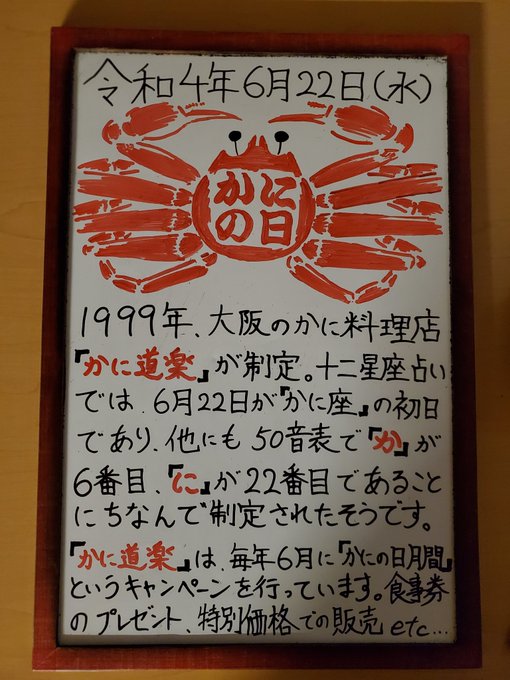 令和4年6月22日(水)
かに
の日
1999年、大阪のかに料理店
『かに道楽』が制定。十二星座占い
では、6月22日が『かに座』の初日
であり、他にも50音表で『か』が
6番目、『に』が22番目であること
にちなんで制定されたそうです。
『かに道楽』は、毎年6月に『かにの日月間』
というキャンペーンを行っています。食事券
のプレゼント、特別価格での販売 etc...